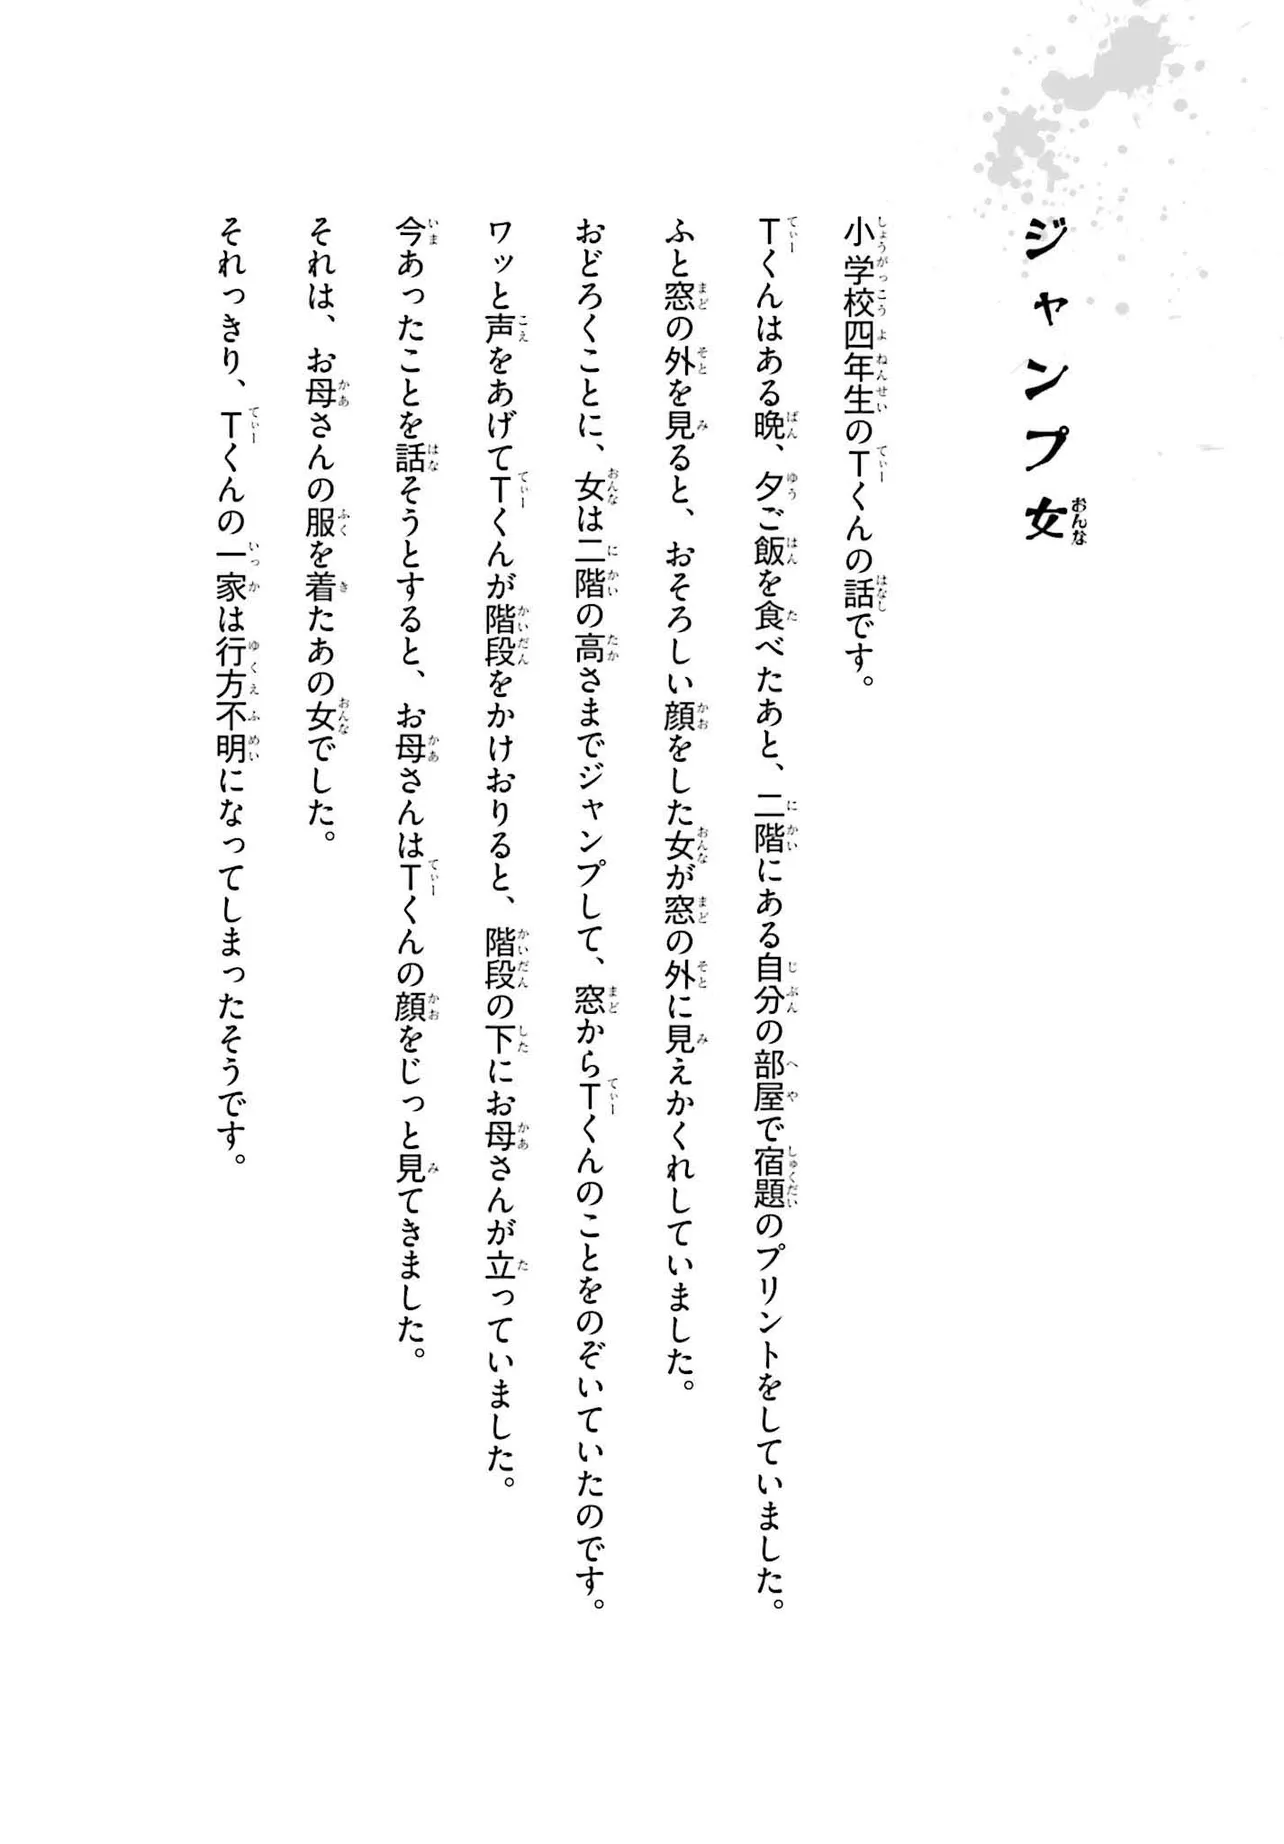 ジャンプ女
小学校四年生のTくんの話です。
Tくんはある晩、夕ご飯を食べたあと、二階にある自分の部屋で宿題のプリントをしていました。
ふと窓の外を見ると、おそろしい顔をした女が窓の外に見えかくれしていました。
おどろくことに、女は二階の高さまでジャンプして、窓からTくんのことをのぞいていたのです。
ワッと声をあげてTくんが階段をかけおりると、階段の下にお母さんが立っていました。
今あったことを話そうとすると、お母さんはTくんの顔をじっと見てきました。
それは、お母さんの服を着たあの女でした。
それっきり、Tくんの一家は行方不明になってしまったそうです。